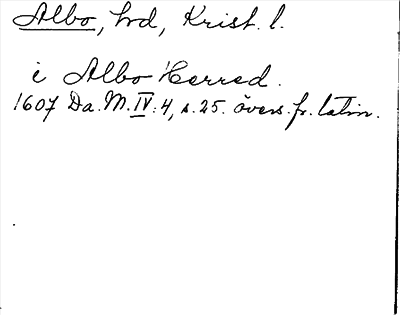 Albo, hrd, Krist. l.
i Albo Herred.
1607 Da. M. IV: 4, s. 25. övers. fr. latin.